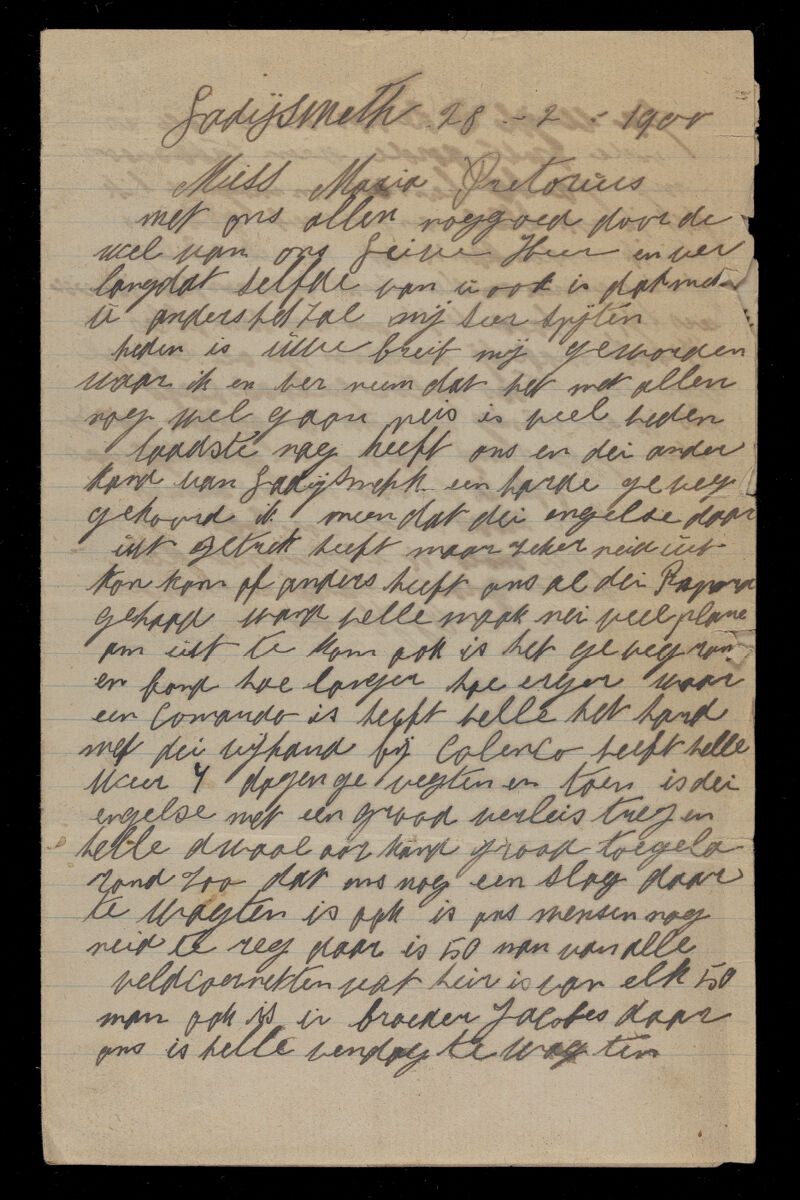 Ladijsmeth 28 - 2 - 1900
Miss Maria Pretorius
met ons allen nog goed door de
wel van ons Leive Heer en ver
lang dat selfde van ū ook is dat met
ū anders het zal mij seer spijten
heden is ūwe breif mij geworden
waar ik en ver neem dat het met allen
nog wel gaan neis is veel heden
laadste nag heeft ons en dei ander
kand van Ladijsmeth een harde geveg
gehoord ik meen dat dei engelse daar
ūit getrek heeft maar zeker neid ūit
kon kom of anders heeft ons al dei Rapord
gehaad wand helle maak nei veel plane
om ūit te kom ook is het geveg ron
en bond hoe langer hoe erger waar
een Comando is heeft helle het hard
met dei vijhand bij Colenco heeft helle
weer 4 dagen ge vegten en toen is dei
engelse met een grood verleis treg en
helle dwaal oor kand groop toegela
rond zoo dat ons nog een slag daar
te wagten is ook is ons mensen nog
neid te reg daar is 50 man van alle
veldcoernetten wat heir is van elk 50
man ook is ū broeder Jacobes daar
ons is helle vendag te wagten